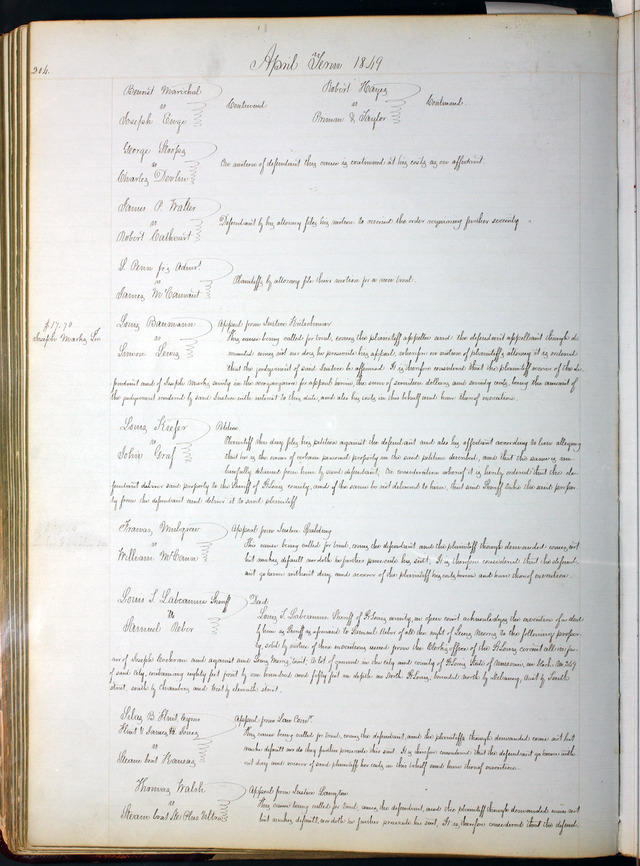 204.
April Term 1849
Benoist Marichal
vs
Joseph
Continued
Robert Hayes
vs
& Taylor
Continued.
George
vs
Charles Devlin
On motion of defendant this cause is continued at his costs as on affidavit.
James P. Walter
vs
Robert Cathcart
Defendant by his attorney files his motion to rescind the order requiring further security.
S. Penn Jr's Admr.
vs
James McCannant
Plaintiffs by attorney file their motion for a new trial.
$17.70
Joseph Marks Sec
Louis Baumann
vs
Simon Lewis
Appeal from Justice
This cause being called for trial, comes the plaintiff appellee and the defendant appellant though de
manded comes not nor does he prosecute his appeal, wherefore on motion of plaintiff's attorney it is ordered
that the judgment of said Justice be affirmed. It is therefore considered that the plaintiff recover of the de-
fendant and of Joseph Marks security in the recognizance for appeal herein, the sum of seventeen dollars and seventy cents, being the amount of
the judgment rendered by said Justice with interest to this date, and also his costs in this behalf and have thereof execution.
Louis Keefer
vs
John Graf
Petition
Plaintiff this day files his petition against the defendant and also his affidavit according to law alleging
that he is the owner of certain personal property in the said petition described, and that the same is un
lawfully detained from him by said defendant. On consideration whereof it is hereby ordered that the de-
fendant deliver said property to the Sheriff of St Louis county, and if the same be not delivered to him, that said Sheriff take the said proper-
ty from the defendant and deliver it to said plaintiff
Frances Mulgrew
vs
William McCann
Appeal from Justice Spalding
This cause being called for trial, comes the defendant, and the plaintiff though demanded, comes not
but makes default nor doth he further prosecute his suit. It is therefore considered that the defend-
ant go hence without day and recover of the plaintiff his costs herein and have thereof execution.
Louis T. Labeaume Sheriff
To
Samuel Rebor
Deed
Louis T. Labeaume Sheriff of St Louis county, in open court acknowledges the execution of a deed
by him as Sheriff as aforesaid to Samuel Rebor of all the right of Lewis Morris to the following proper-
ty, sold by virtue of three executions issued from the Clerk's office of the St Louis circuit all in fa-
vor of Joseph Cockran and against said Lewis Morris, to wit: A lot of ground in the city and county of St Louis State of Missouri, in block No 249
of said city, containing eighty feet front by one hundred and fifty feet in depth in North St Louis, bounded north by Mulanphy, East by Tenth
street, south by Chambers and West by eleventh street.
Silas B. Flint, Cyrus
Flint & James H. Jones
vs
Steam boat Kansas
Appeal from Law Com'r.
This cause being called for trial, comes the defendant, and the plaintiffs though demanded come not but
make default nor do they further prosecute this suit. It is therefore considered that the defendant go hence with-
out day and recover of said plaintiffs her costs in this behalf and have thereof execution.
Thomas Walsh
vs
Steam boat
Appeal from Justice
This cause being called for trial, comes the defendant, and the plaintiff though demanded comes not
but makes default, nor doth he further prosecute his suit. It is therefore considered that the defend-